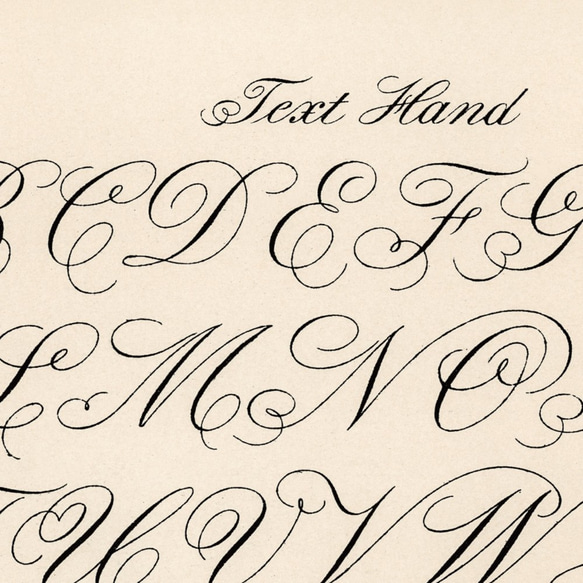 Text Hand
B C D E F G
L M N O
U V W